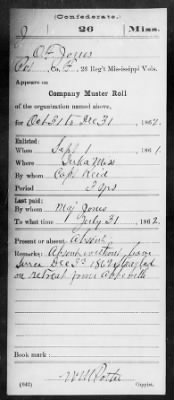 (Confederate.)
J 26 Miss.
O. F. Jones
Co. F., 26 Reg't Mississippi Vols.
Appears on
Company Muster Roll
of the organization named above,
for Oct 31 to Dec 31, 1862.
Enlisted:
When Sept 1, 1861.
Where Iuka Miss
By whom Capt Reid
Period 3 yrs
Last paid:
By whom Maj Jones
To what time July 31, 1862.
Present or absent Absent
Remarks: Absent without leave
since Dec 5th 1862 straggled
on retreat from Abbeville
Book mark:
(642) Copyist.